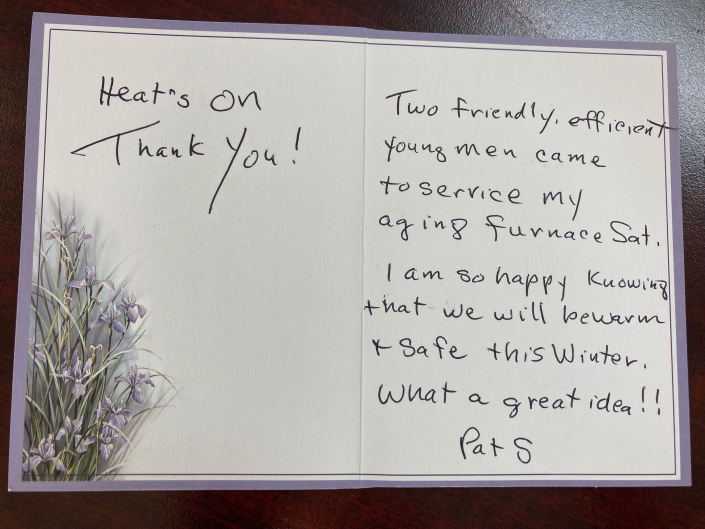 Heat's On
Thank You!
Two friendly, efficient
young men came
to service my
aging furnace Sat.
I am so happy knowing
that we will be warm
& safe this Winter.
What a great idea!!
Pat S